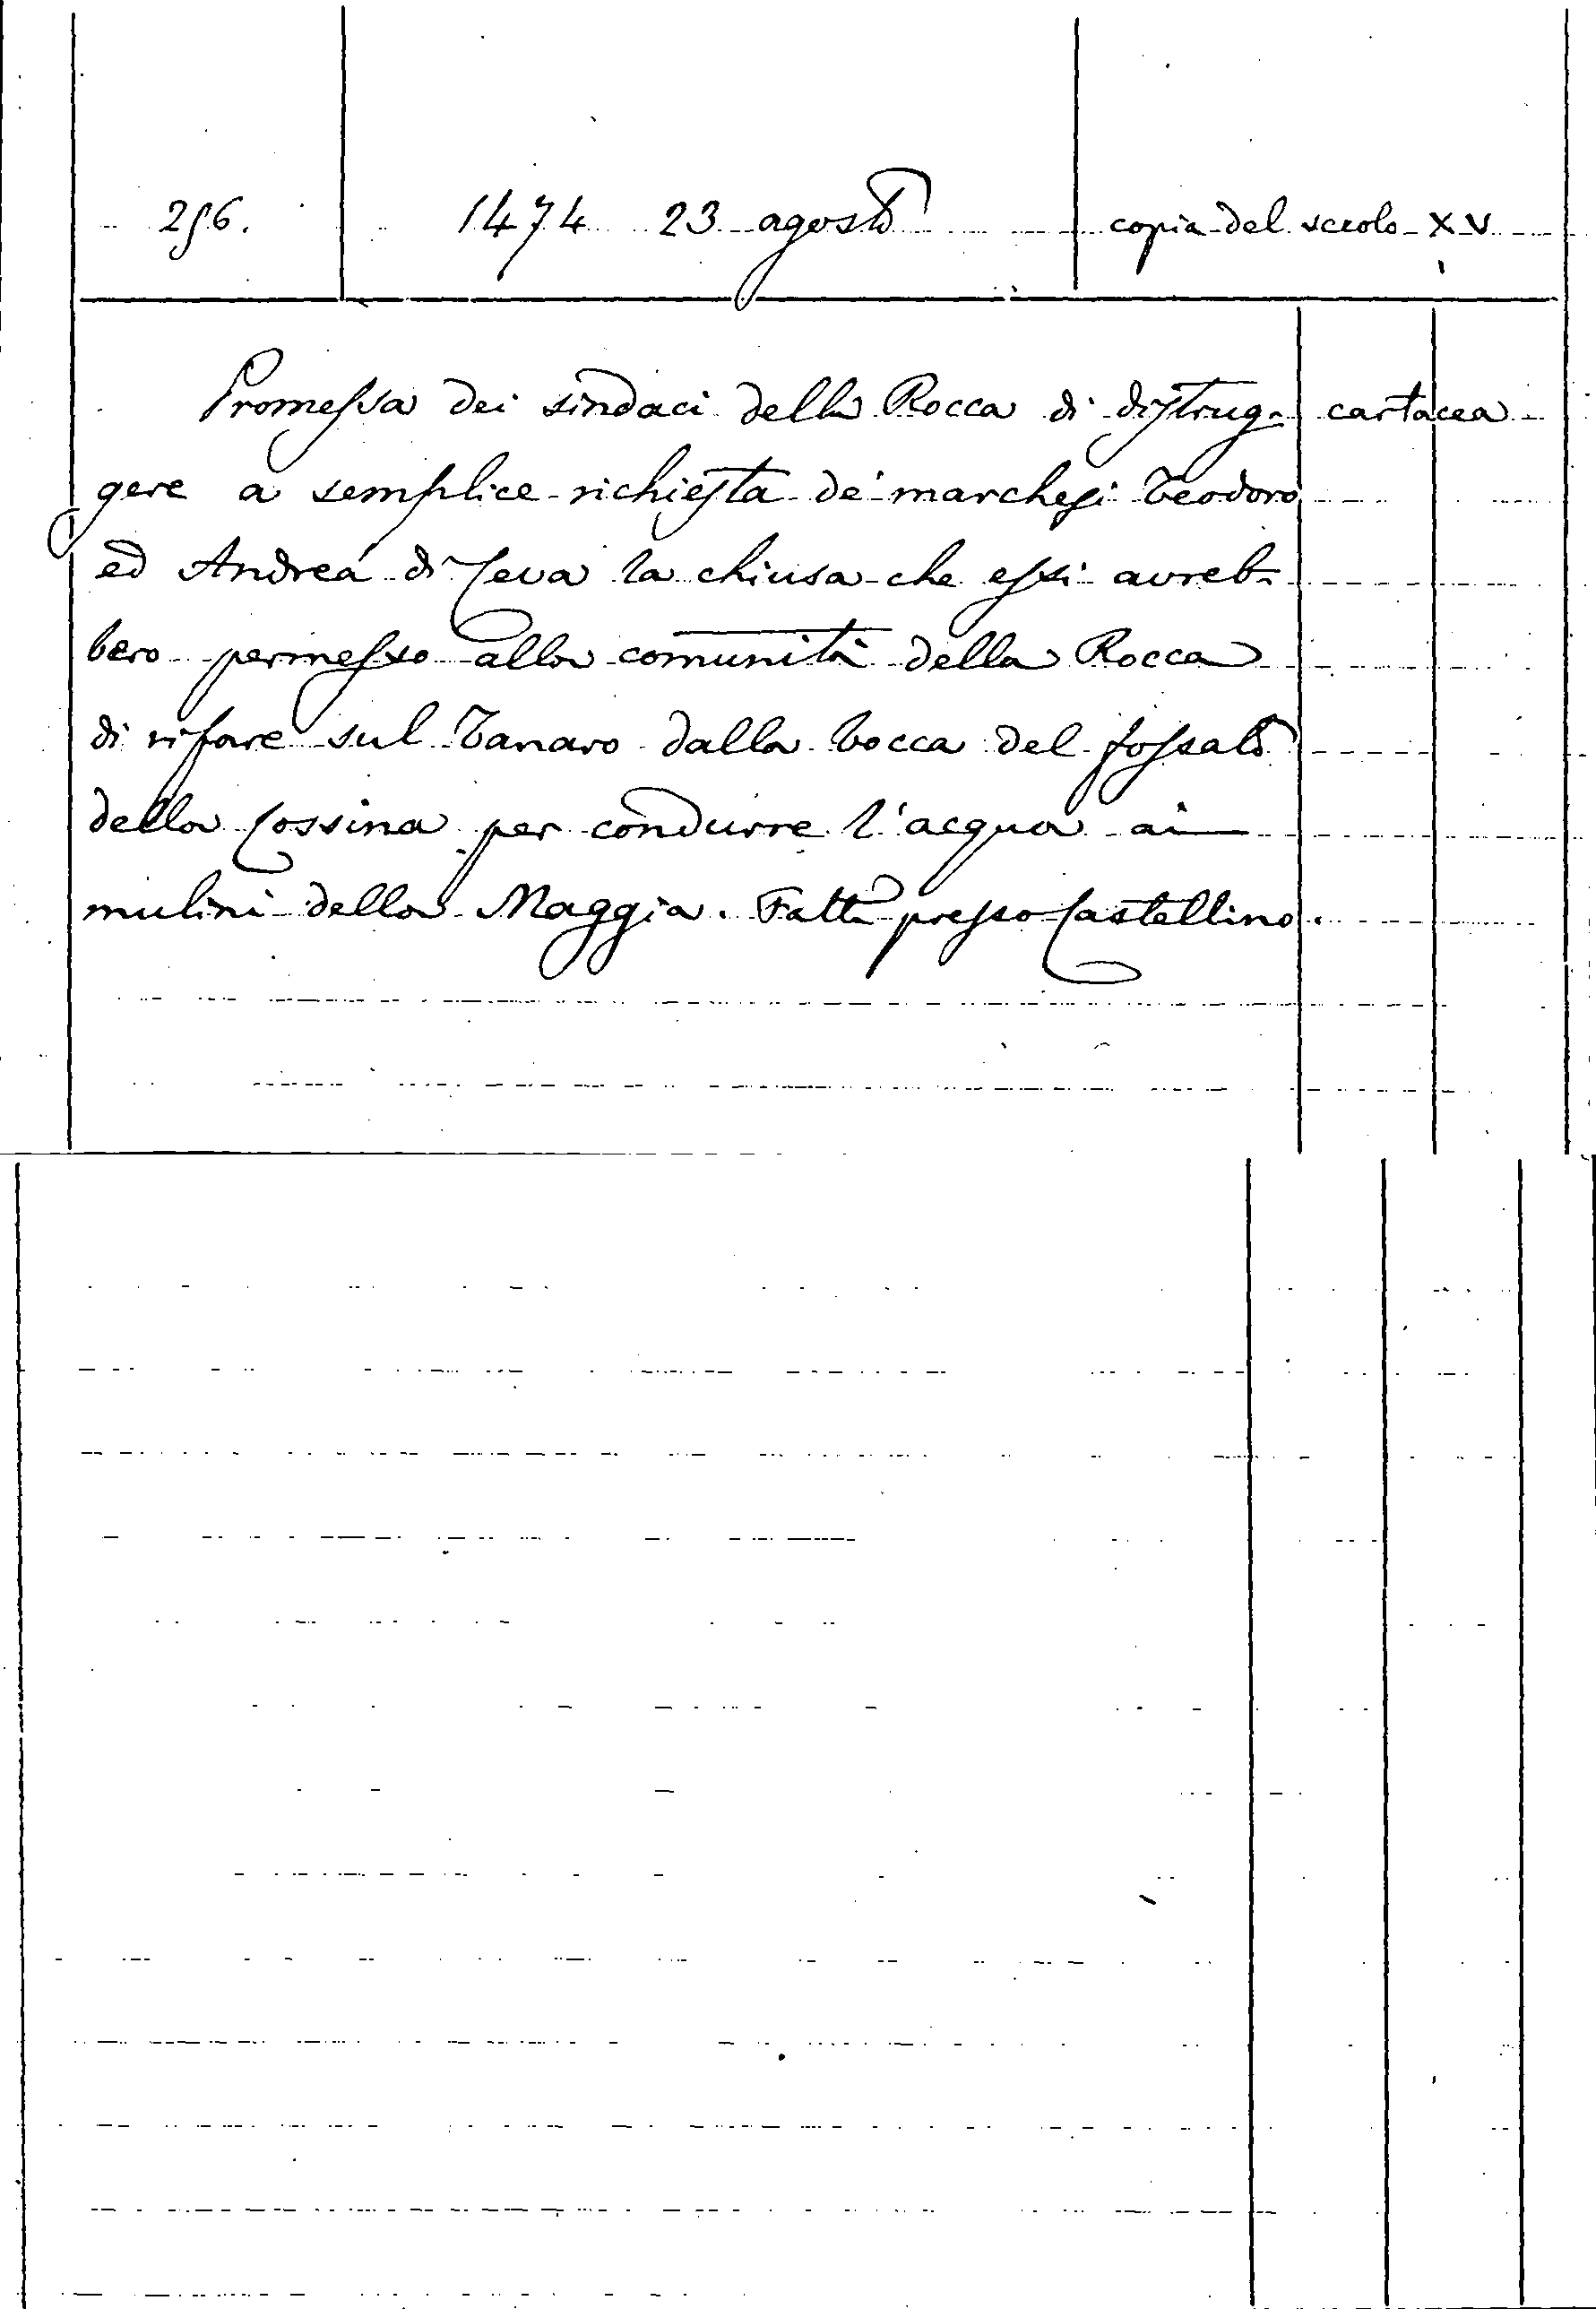 256. 1474 23 agosto copia del secolo XV
Promessa dei sindaci della Rocca di distrug- cartacea
gere a semplice richiesta de' marchesi Teodoro
ed Andrea di Ceva la chiusa che essi avreb-
bero permesso alla comunità della Rocca
di rifare sul Tanaro dalla bocca del fossato
della Cossina per condurre l'acqua ai
mulini della Maggia. Fatta presso Castellino.